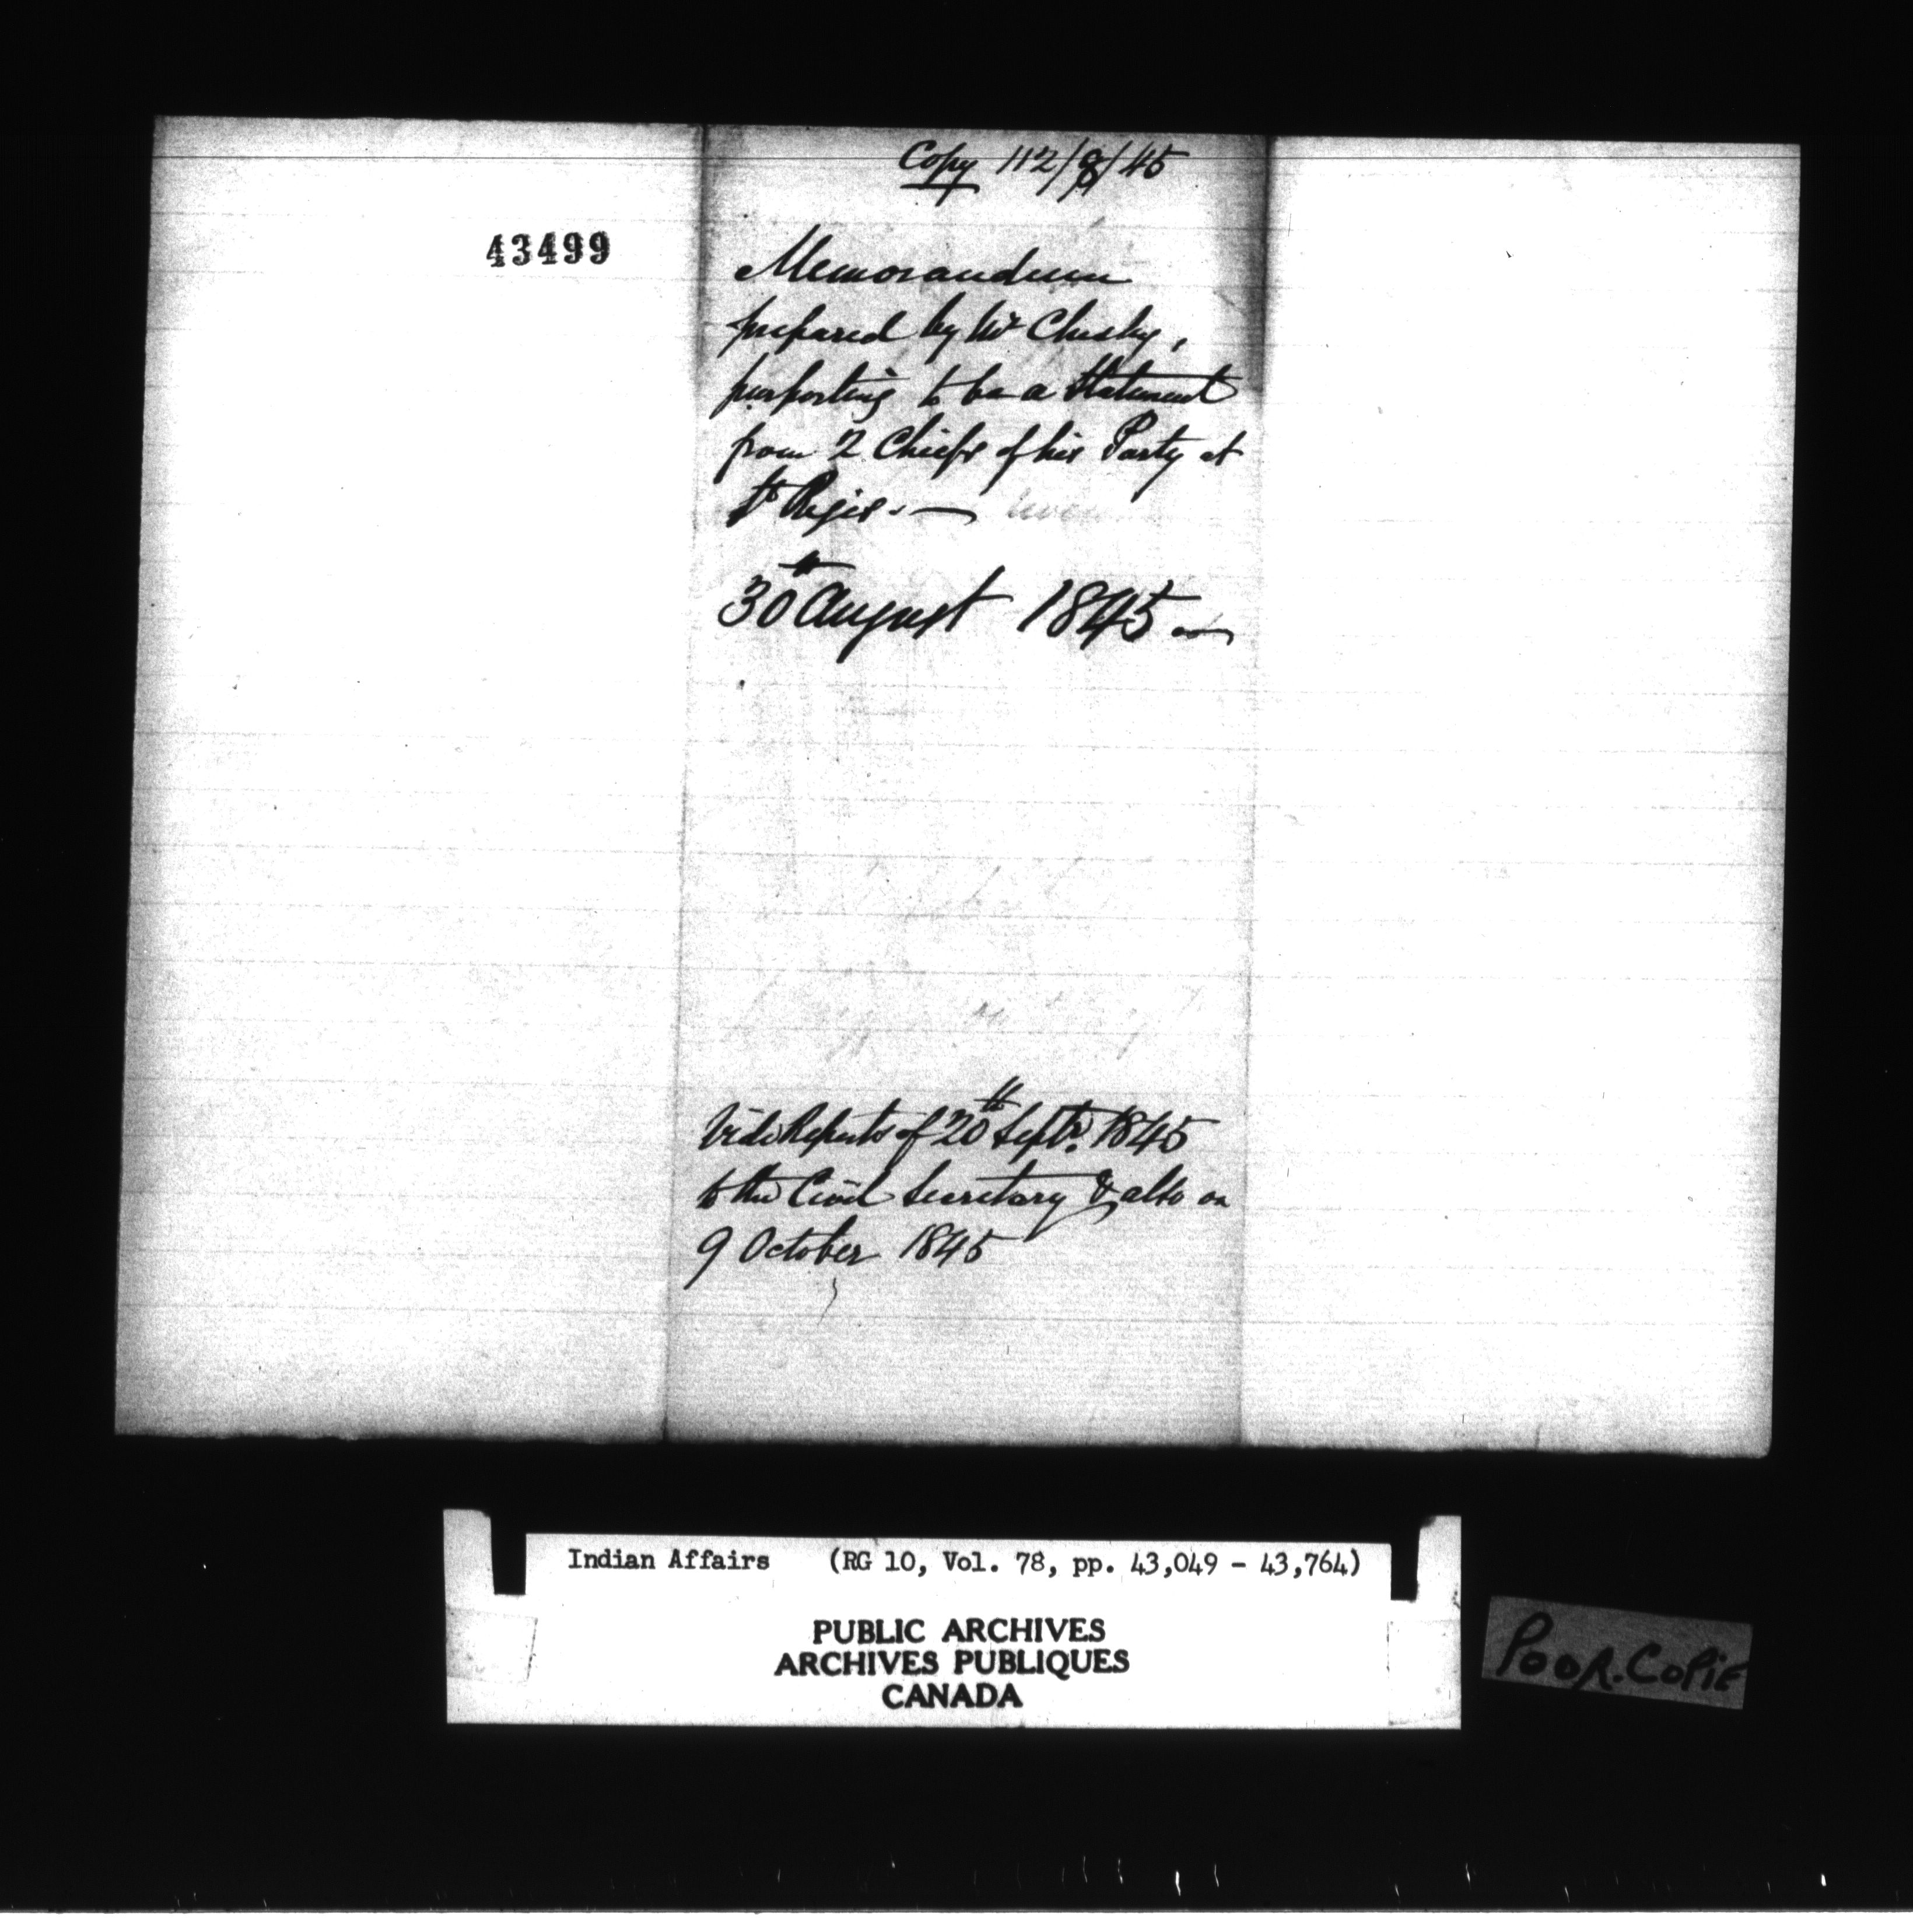 Copy 112/8/45
43499
Memorandum
prepared by Mr Chesley,
purporting to be a Statement
from 2 Chiefs of his Party at
St Regis. —
30th August 1845
Vide Reports of 20th Septr. 1845
to the Civil Secretary & also on
9 October 1845
Indian Affairs (RG 10, Vol. 78, pp. 43,049 - 43,764)
PUBLIC ARCHIVES
ARCHIVES PUBLIQUES
CANADA
POOR.COPIE